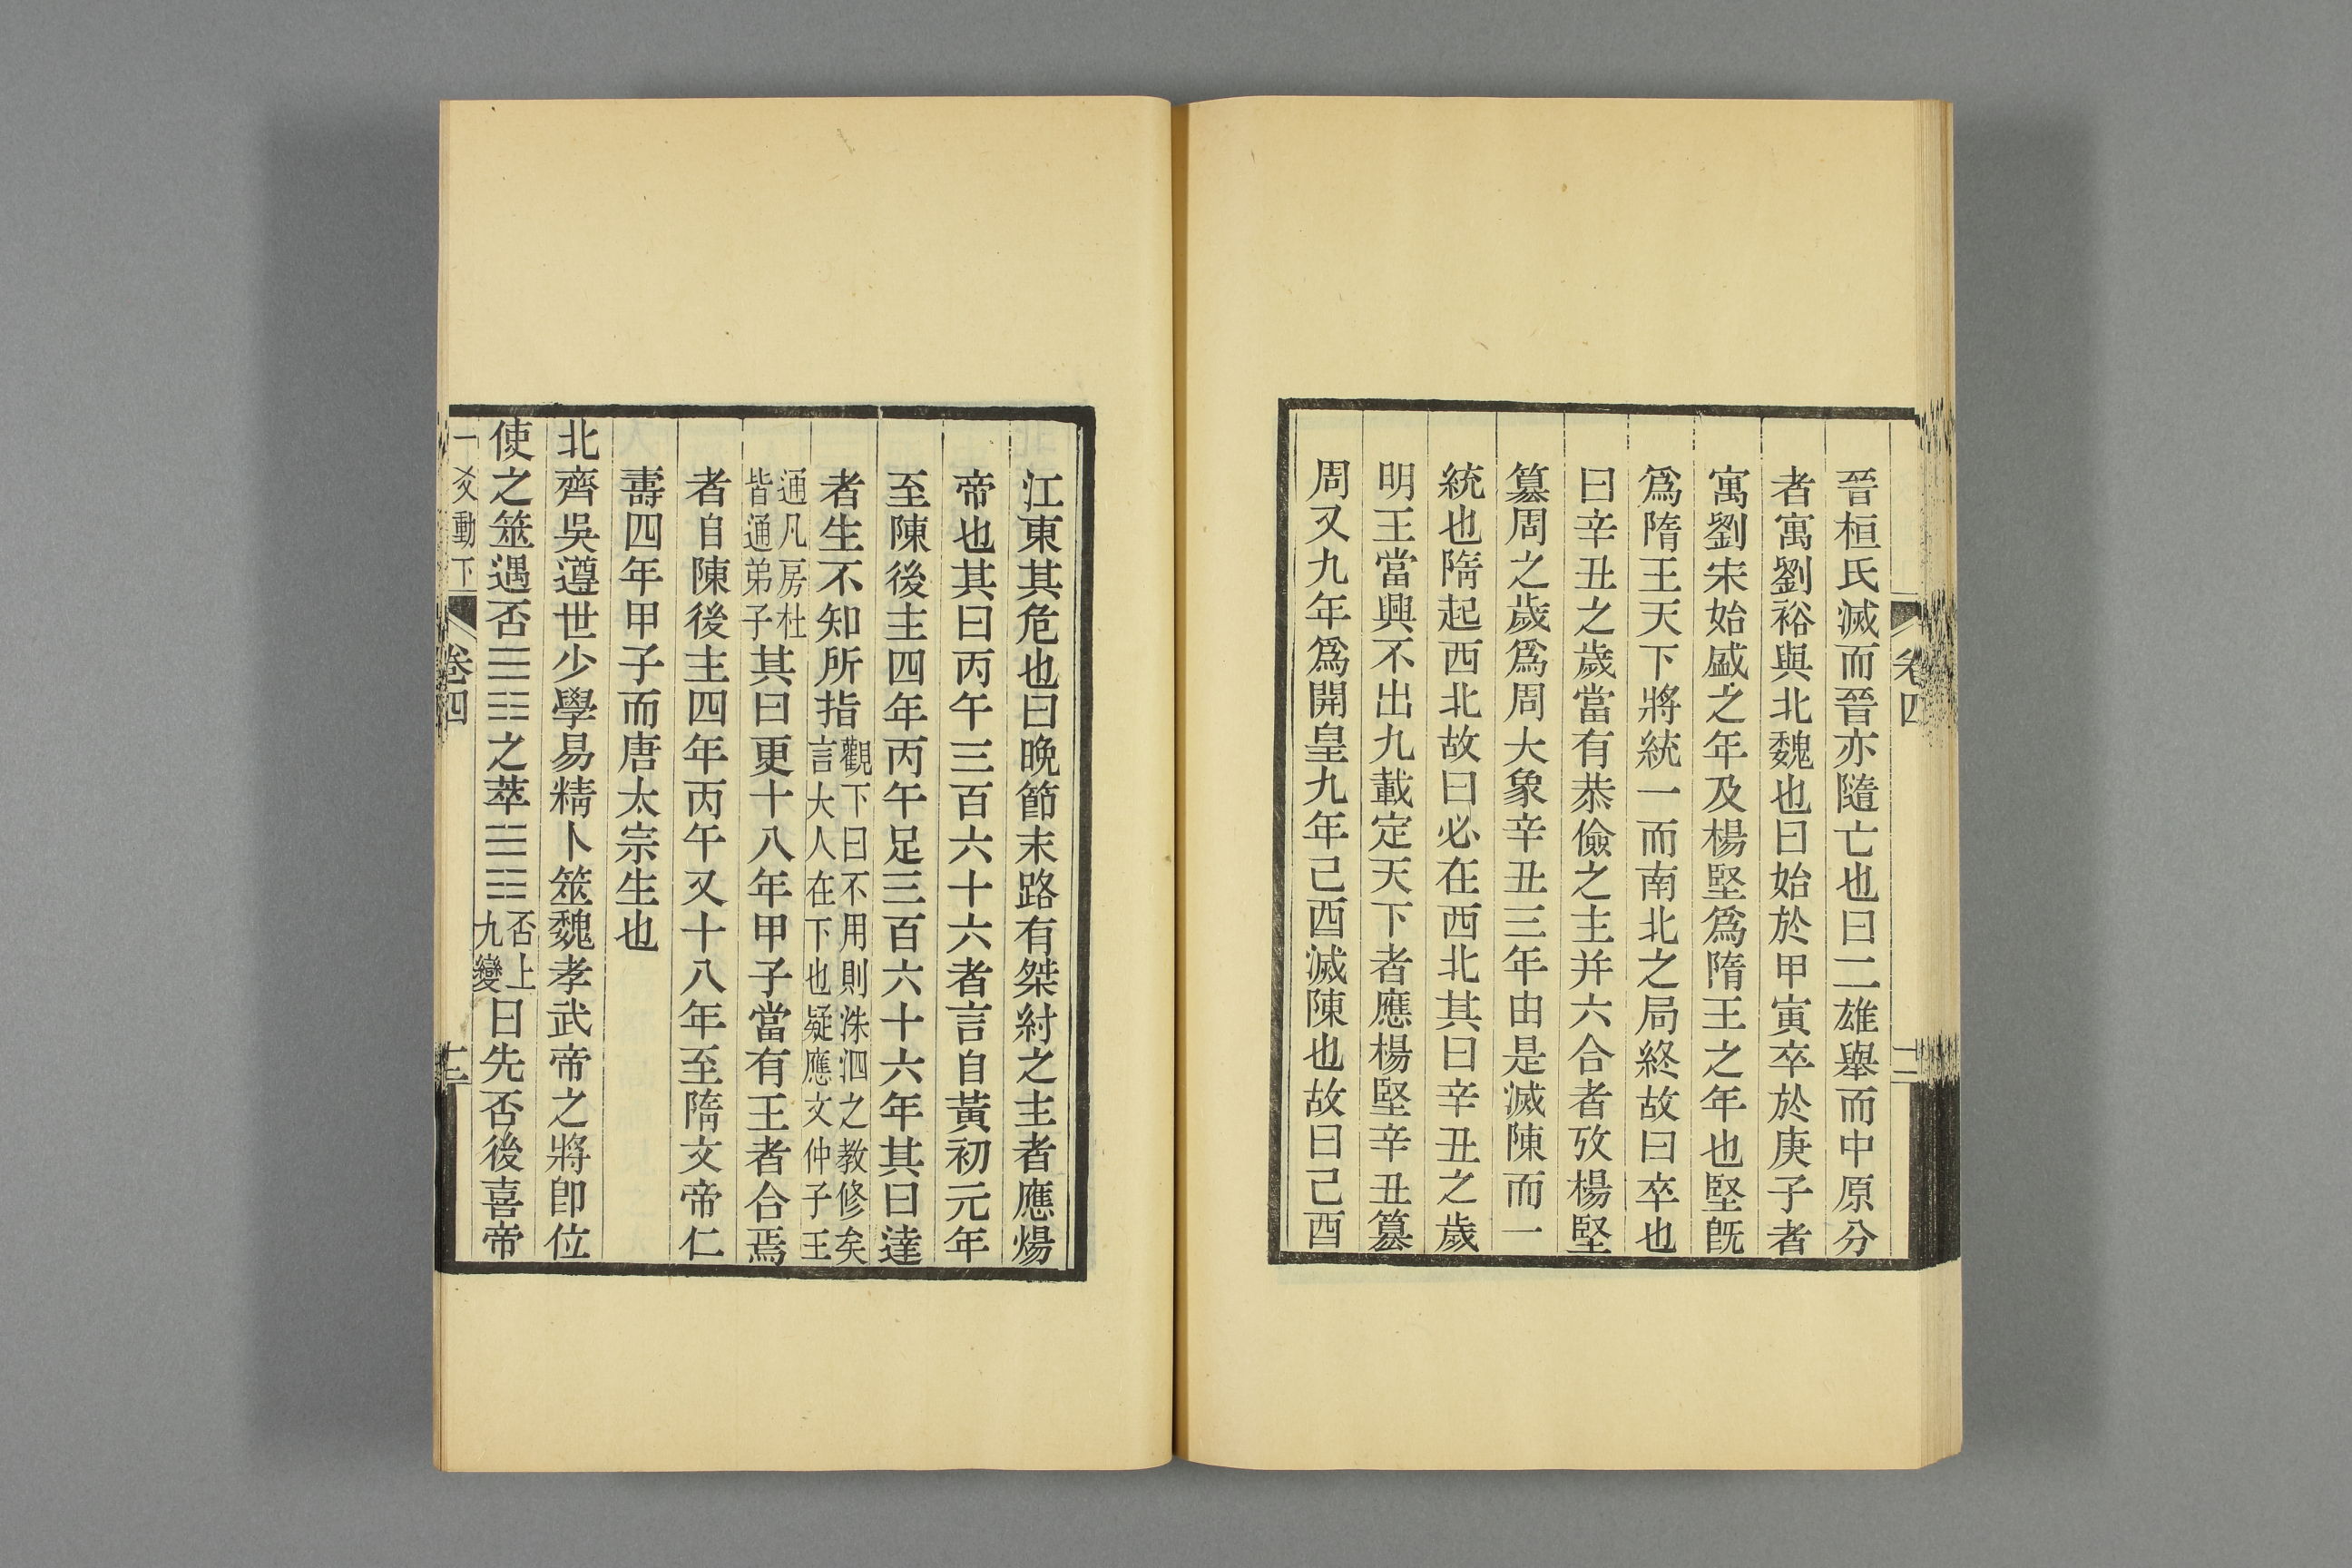 卷四
晉桓氏滅而晉亦隨亡也曰二雄舉而中原分
者寓劉裕與北魏也曰始於甲寅卒於庚子者
寓劉宋始盛之年及楊堅爲隋王之年也堅旣
爲隋王天下將統一而南北之局終故曰卒也
曰辛丑之歲當有恭儉之主并六合者攷楊堅
篡周之歲爲周大象辛丑三年由是滅陳而一
統也隋起西北故曰必在西北其曰辛丑之歲
明王當興不出九載定天下者應楊堅辛丑篡
周又九年爲開皇九年己酉滅陳也故曰己酉
江東其危也曰晚節末路有桀紂之主者應煬
帝也其曰丙午三百六十六者言自黃初元年
至陳後主四年丙午足三百六十六年其曰達
者生不知所指觀下曰不用則洙泗之教修矣
言大人在下也疑應文仲子王
通凡房杜
皆通弟子其曰更十八年甲子當有王者合焉
者自陳後主四年丙午又十八年至隋文帝仁
壽四年甲子而唐太宗生也
北齊吳遵世少學易精卜筮魏孝武帝之將卽位
使之筮遇否䷋之萃䷬否上
九變曰先否後喜帝
一爻動下
卷四